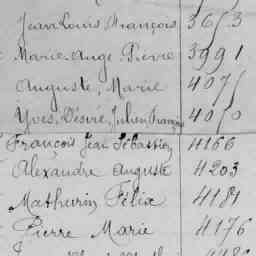 Jean Louis François 3653
Marie Ange Pierre 3991
Auguste, Marie 4075
Yves, Désiré, Julien François 4050
François Jean Sébastien 4166
Alexandre Auguste 4203
Mathurin Félix 4181
Pierre Marie 4176